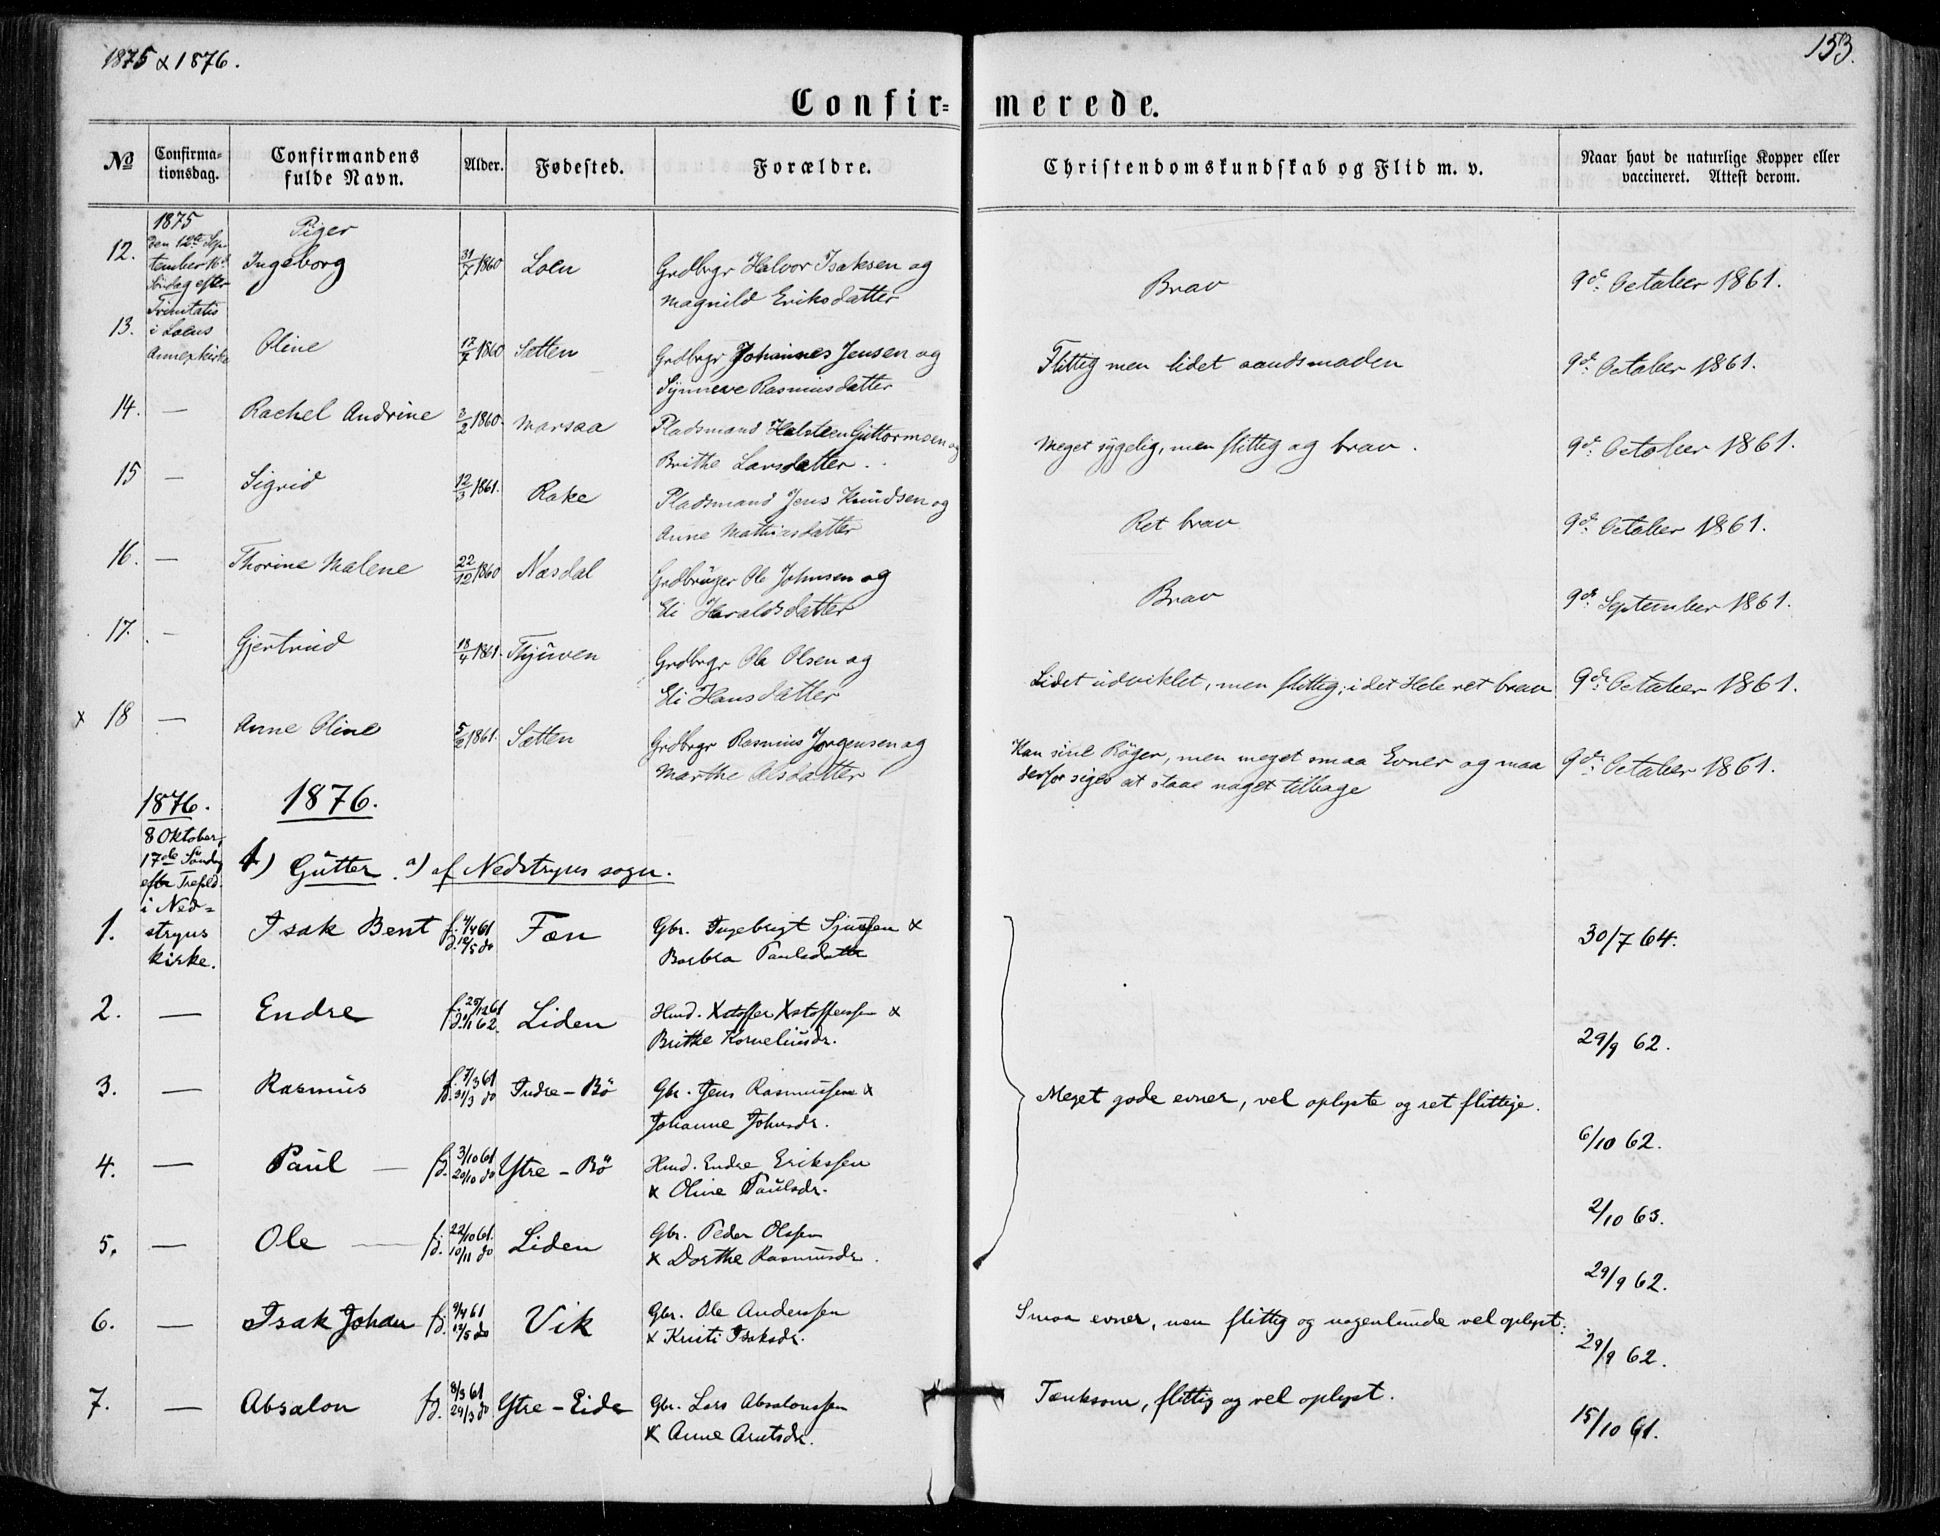 1875 & 1876.
153.
Confir= merede.
No Confirma=tionsdag. Confirmandens fulde Navn. Alder. Fødested. Forældre. Christendomskundskab og Flid m. v. Naar havt de naturlige Kopper eller vaccineret. Attest derom.
1875 Piger
den 12te September 16d Søndag efter Trinitatis i Loens Annexkirke
12. Ingeborg 31/7 1860 Loen Grdbrgr Halvor Isaksen og
Magnild Eriksdatter Brav 9de October 1861.
13. Oline 17/7 1860 Sætten Grdbrgr Johannes Jensen og
Synneve Rasmusdatter Flittig men lidet aandsmoden 9de October 1861.
14. — Rachel Andrine 3/2 1860 Marsaa Pladsmand Halsteen Guttormsen og
Brithe Larsdatter. Meget sygelig, men flittig og brav. 9de October 1861.
15 — Sigrid 12/3 1861. Rake Pladsmand Jens Knudsen og
Anne Mathiasdatter Ret brav 9de October 1861.
16. — Thorine Malene 22/12 1860 Næsdal Grdbruger Ole Johnsen og
Eli Haraldsdatter Brav 9de September 1861.
17. — Gjertrud 18/4 1861. Thjuven Grdbrgr Ole Olsen og
Eli Hansdatter Lidet udviklet, men flittig, i det Hele ret brav 9de October 1861.
x 18 — Anne Oline 5/2 1861. Sætten Grdbrgr Rasmus Jørgensen og
Marthe Olsdatter Kan sine Bøger, men meget smaa Evner og maa
derfor siges at staae noget tilbage 9de October 1861.
1876. 1876.
8 Oktober, 17de Søndag efter Trefold. i Nedstryns kirke.
1) Gutter. a) af Nedstryns sogn.
1. Isak Bent f. 4/4 61 d. 12/5 do Fæn Gbr. Ingebrigt Sjursen &
Barbra Paulsdatter 30/7 64.
2. — Endre f. 25/12 61 d. 1/1 62. Liden Hmd. Xstoffer Xstoffersen &
Brithe Korneliusdr. 29/9 62.
3. — Rasmus f. 7/3 61 d. 31/3 do Indre-Bö Gbr. Jens Rasmussen &
Johanne Johnsdr. Meget gode evner, vel oplyste og ret flittige. 6/10 62.
4. — Paul — f. 3/10 61 d. 20/10 do Ytre-Bö Hmd. Endre Erikssen
& Oline Paulsdr. 2/10 63.
5. — Ole — f. 22/10 61. d. 10/11 do Liden Gbr. Peder Olssen
& Dorthe Rasmusdr. 29/9 62.
6. — Isak Johan f. 9/4 61 d. 12/5 do Vik Gbr. Ole Anderssen
& Kristi Isaksdr. Smaa evner, men flittig og nogenlunde vel oplyst. 29/9 62.
7. — Absalon f. 8/3 61 d. 29/3 do Ytre-Eide Gbr. Lars Absalonssen
& Anne Arntsdr. Tænksom, flittig og vel oplyst. 15/10 61.